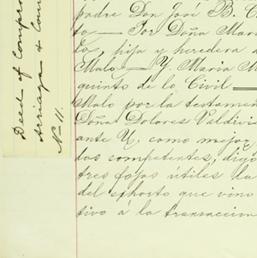 Deed of Compro
Arriaga & Com
No 11.
padre Don José B. C
to — Por Doña Mari
la, hija y heredera d
Malo — Y. Maria M
quinto de lo Civil
Malo por la testament
Doña Dolores Valdivi
ante U, como mejor
los competentes, digo
tres fojas útiles la
del exhorto que vino
tivo á la transaccion